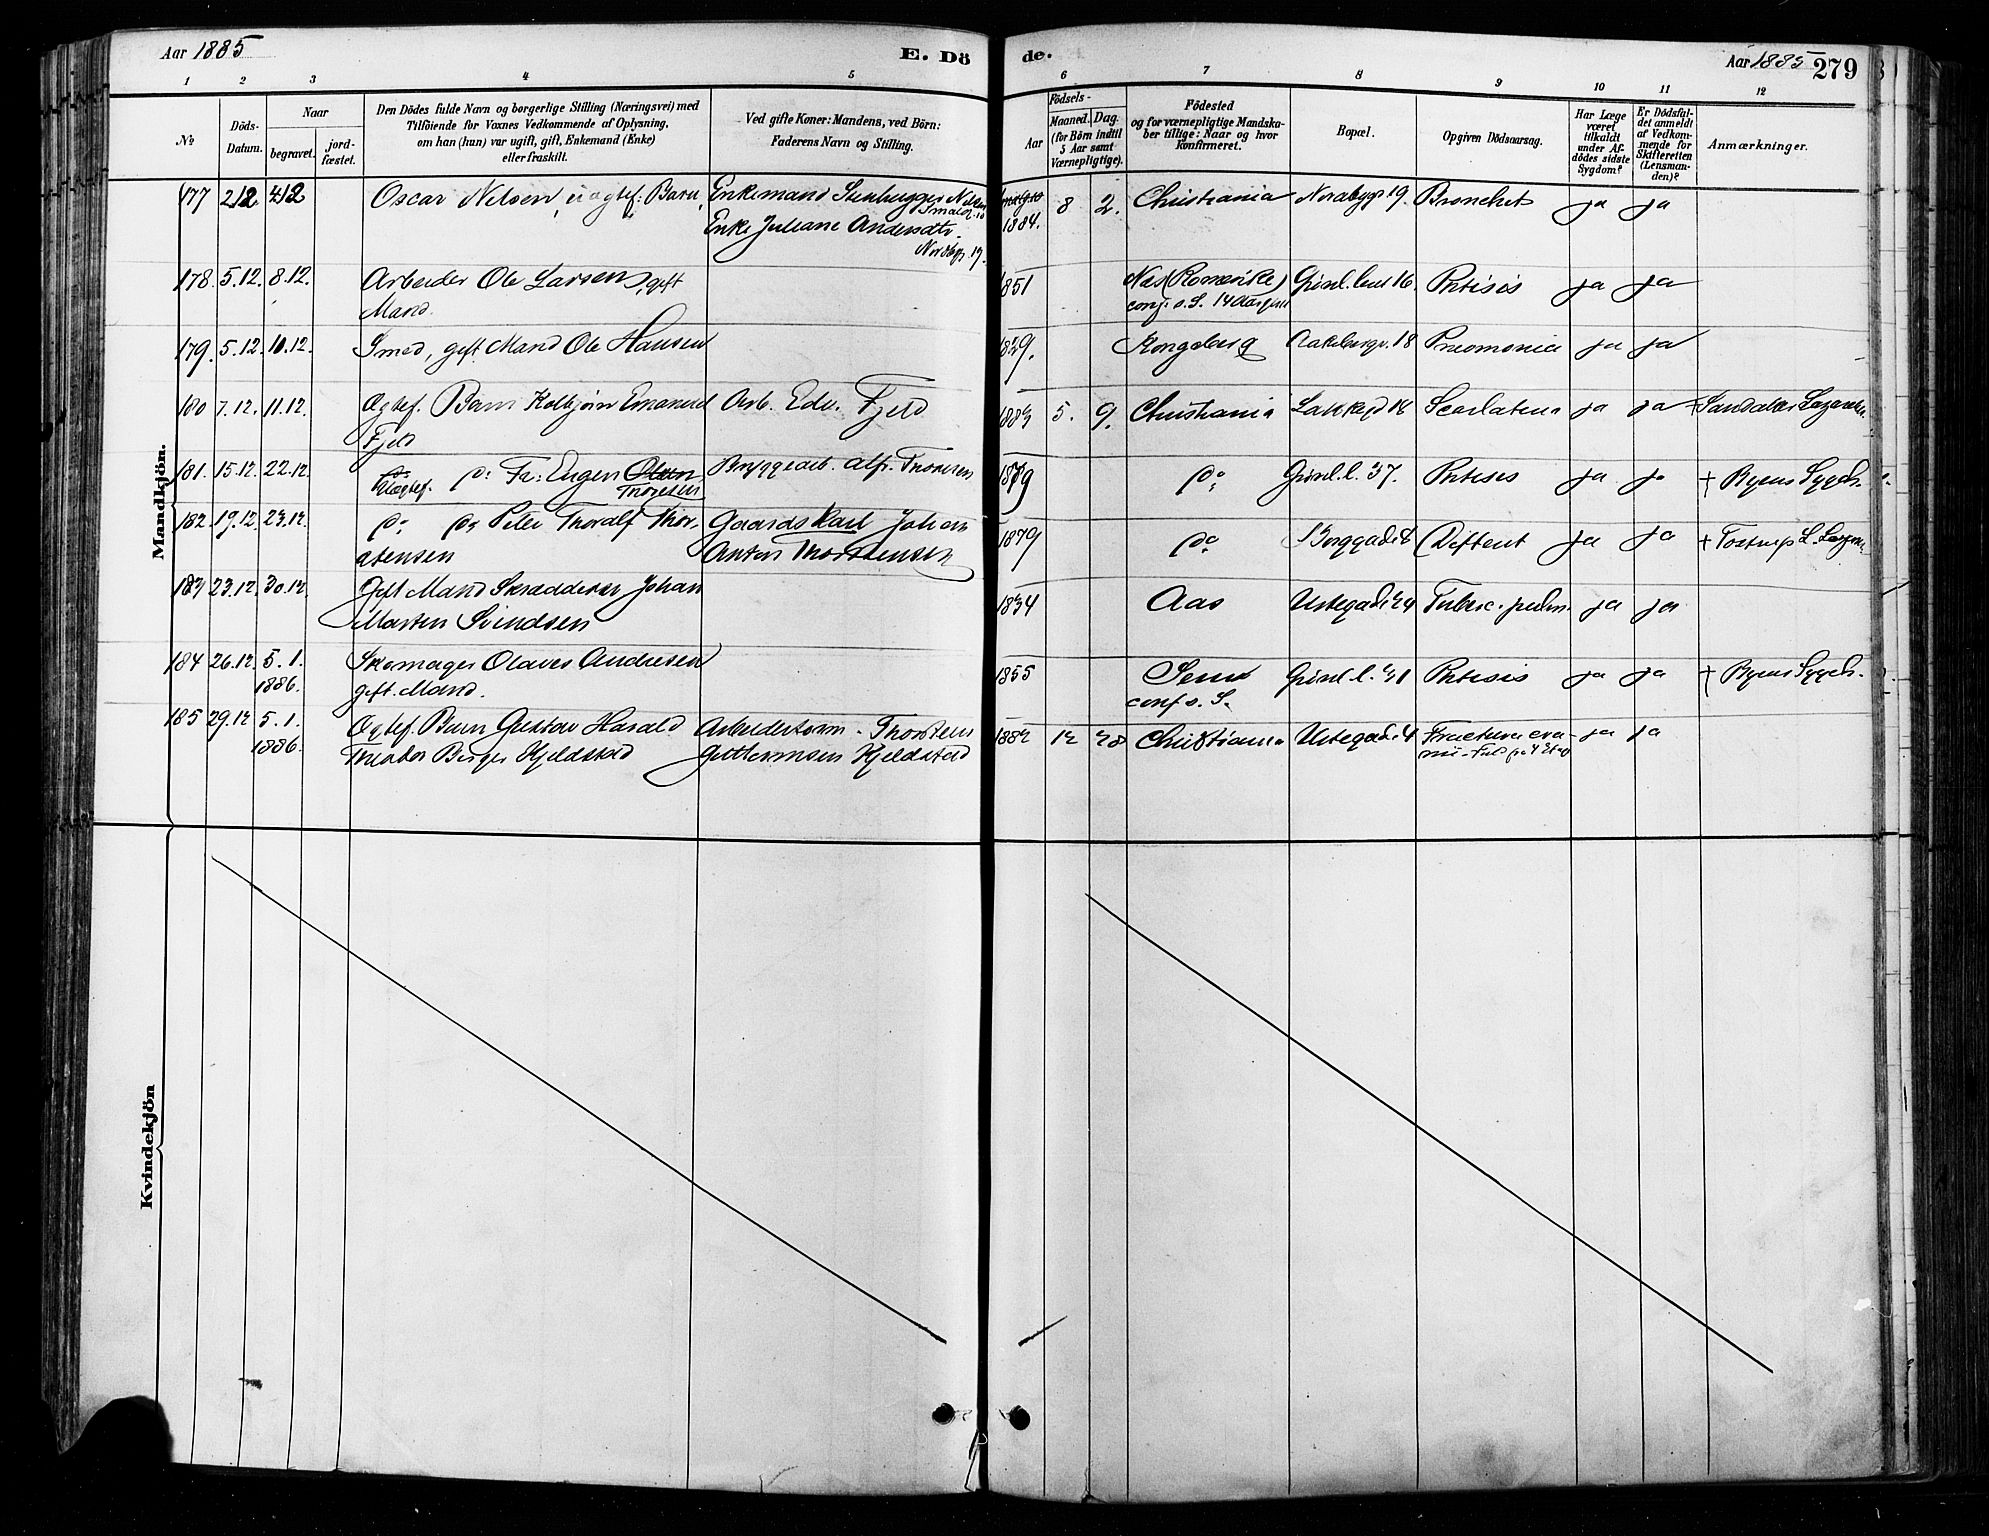 Aar 1885
E. Dö
de.
Aar 1885
279
1 2 3 4 5 6 7 8 9 10 11 12
No
Döds-Datum.
Naar
begravet.
jord-fæstet.
Den Dödes fulde Navn og borgerlige Stilling (Næringsvei) med
Tilföiende for Voxnes Vedkommende af Oplysning,
om han (hun) var ugift, gift, Enkemand (Enke)
eller fraskilt.
Ved gifte Koner: Mandens, ved Börn:
Faderens Navn og Stilling.
Födsels-
Aar
Maaned. Dag.
(for Börn indtil
5 Aar samt
Værnepligtige).
Födested
og for værnepligtige Mandska-
ber tillige: Naar og hvor
Konfirmeret.
Bopæl.
Opgiven Dödsaarsag.
Har Læge
været
tilkaldt
under Af-
dödes sidste
Sygdom?
Er Dödsfal-
det anmeldt
af Vedkom-
mende for
Skifteretten
(Lensman-
den)?
Anmærkninger.
Mandkjön.
177 2/12 4/12 Oscar Nilsen, uægtef. Barn, Enkemand Stenhugger Nilsen 1884. 8 2. Christiania Nordbygt 19. Bronchit ja ja
Enke Juliane Andersdtr.
Nordbyg. 19.
178. 5.12. 8.12. Arbeider Ole Larsen, gift 1851 Næs (Romerike) Grønl. 16. Phtisis ja ja
Mand. conf. s. S. 14 Aar gml
179. 5.12. 10.12. Smed, gift Mand Ole Hansen 1829. Kongsberg Aakebergv. 18 Pneomonia ja ja
180 7.12. 11.12. Ægtef. Barn Kolbjørn Emanuel Arb. Edv. Fjeld 1883 5. 9. Christiania Lakkegd 18 Scarlatina ja ja
Fjeld
181. 15.12. 22.12. Uægtef. do Fr. Eugen Olsen Bryggearb. Alfr. Thoresen 1879 do Grønl. l. 37. Phtisis ja ja + Byens Sygeh.
Thoresen
182 19.12. 23.12. do do Peter Thoralf Thor- Gaardskarl Johan 1879 do Borggade 8 Difterit ja ja + Tostrup L.
stensen Anton Thorstensen
183 23.12. 30.12. Gift Mand Skrædder Johan 1834 Aas Urtegade 24 Tuberc. pulm. ja ja
Martin Svindsen
184 26.12. 5.1. Skomager Olaves Andresen 1855 Sem Grønl. l. 31 Phtisis ja ja + Byens Sygeh.
1886. gift Mand. conf s. S.
185 29.12 5.1. Ægtef. Barn Gustav Harald Arbeidsform. Thorsten 1882 12 28 Christiania Urtegade 4 Fractura cra- ja ja
1886. Theodor Berger Kjeldstad Guttormsen Kjeldstad nii
Kvindekjön